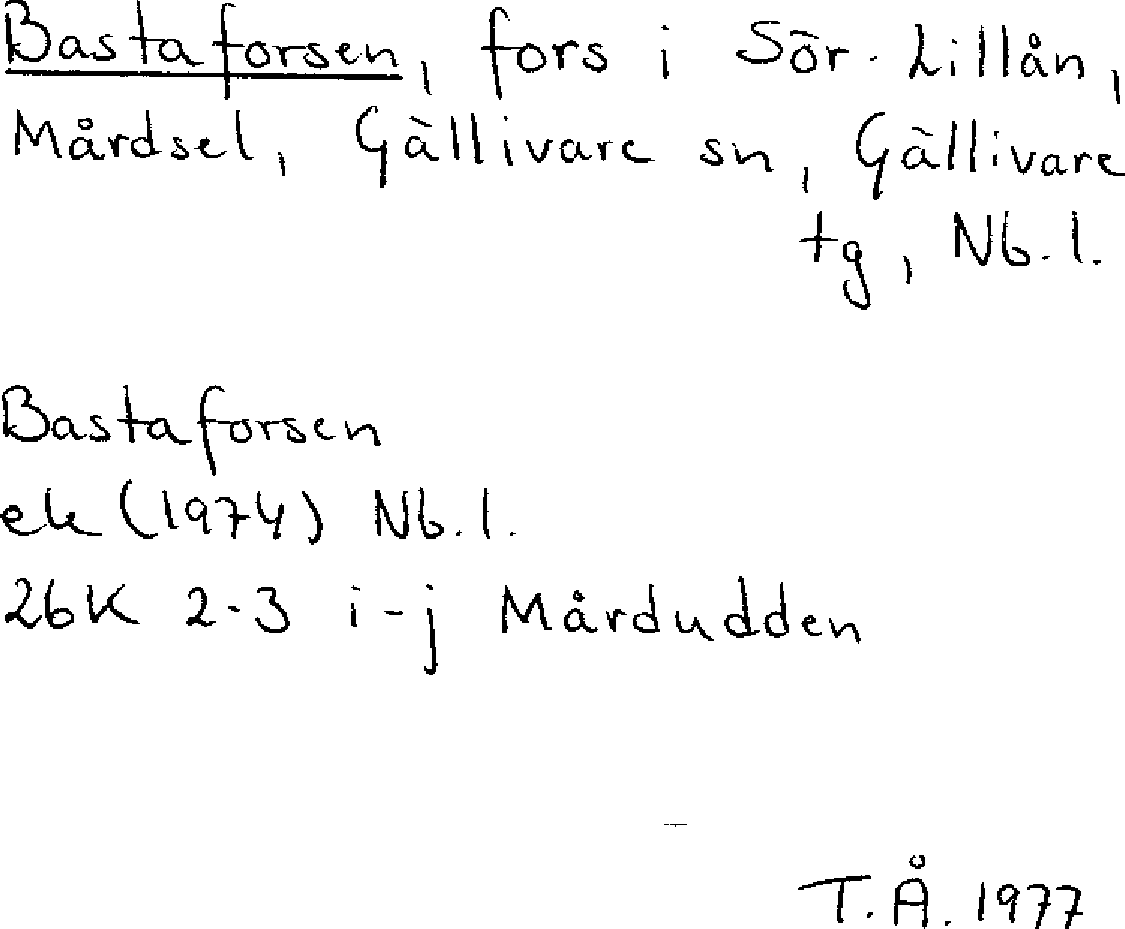 Bastaforsen, fors i Sör. Lillån,
Mårdsel, Gällivare sn, Gällivare
tg, Nb. l.
Bastaforsen
ek (1974) Nb. l.
26K 2-3 i-j Mårdudden
T.Å. 1977